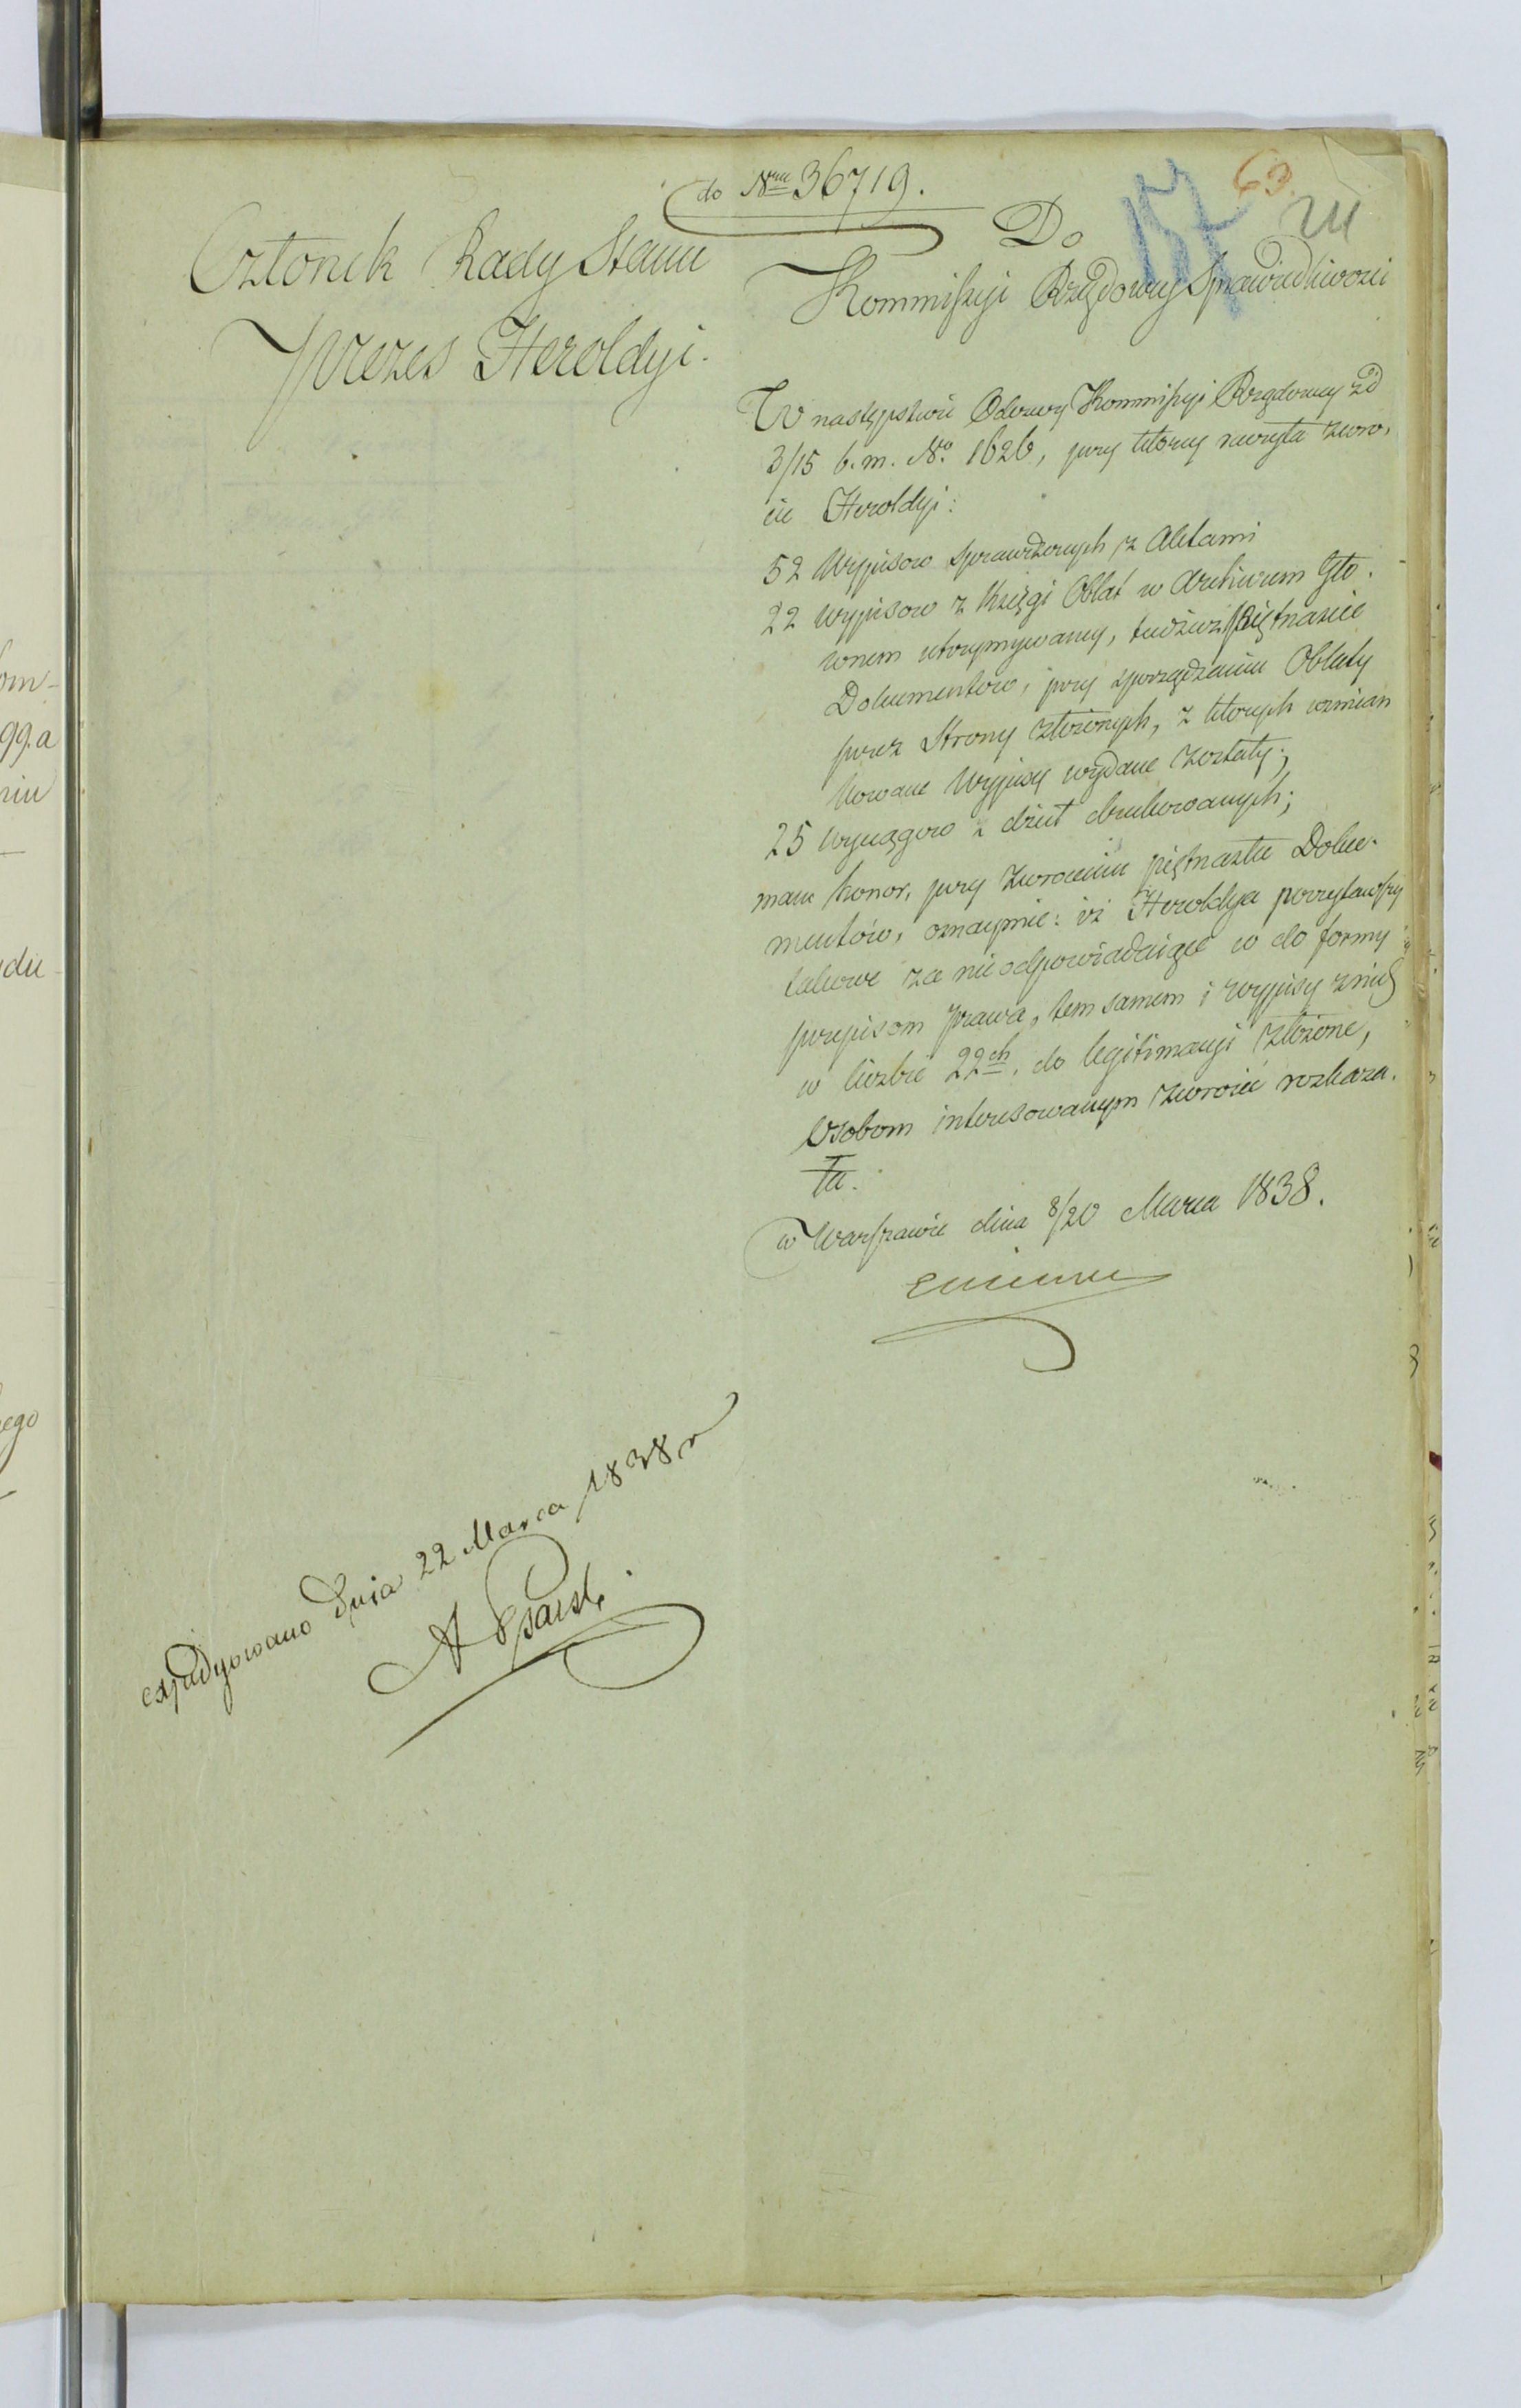 do Nru 36719.
63.
Członek Rady Stanu
Prezes Heroldyi.
Do
Kommissyi Rządowey Sprawiedliwości
W następstwie Odezwy Kommissyi Rządowey z d
3/15 b. m. No. 1626, przy którey raczyła zwró,
cić Heroldyi:
52 Wypisow sprawdzonych z Aktami
22 wypisow z Księgi Oblat w Archiwum Głó.
wnem utrzymywaney, tudzież piętnaście
Dokumentów, przy sporządzeniu Oblaty
przez Strony złożonych, z których wzmian
kowane Wypisy wydane zostały;
25 wyciągow z dzieł drukowanych;
mam honor, przy zwróceniu piętnastu Doku.
mentów, oznaymić: iż Heroldya poczytawszy
takowe za nieodpowiadaiące co do formy
przepisom prawa, tem samem i wypisy z nich
w liczbie 22ch. do legitimacyi złożone,
Osobom interesowanym zwrócić rozkaza.
ła.
w Warszawie dnia 8/20 Marca 1838.
expedyowano Dnia 22 Marca 1838 r